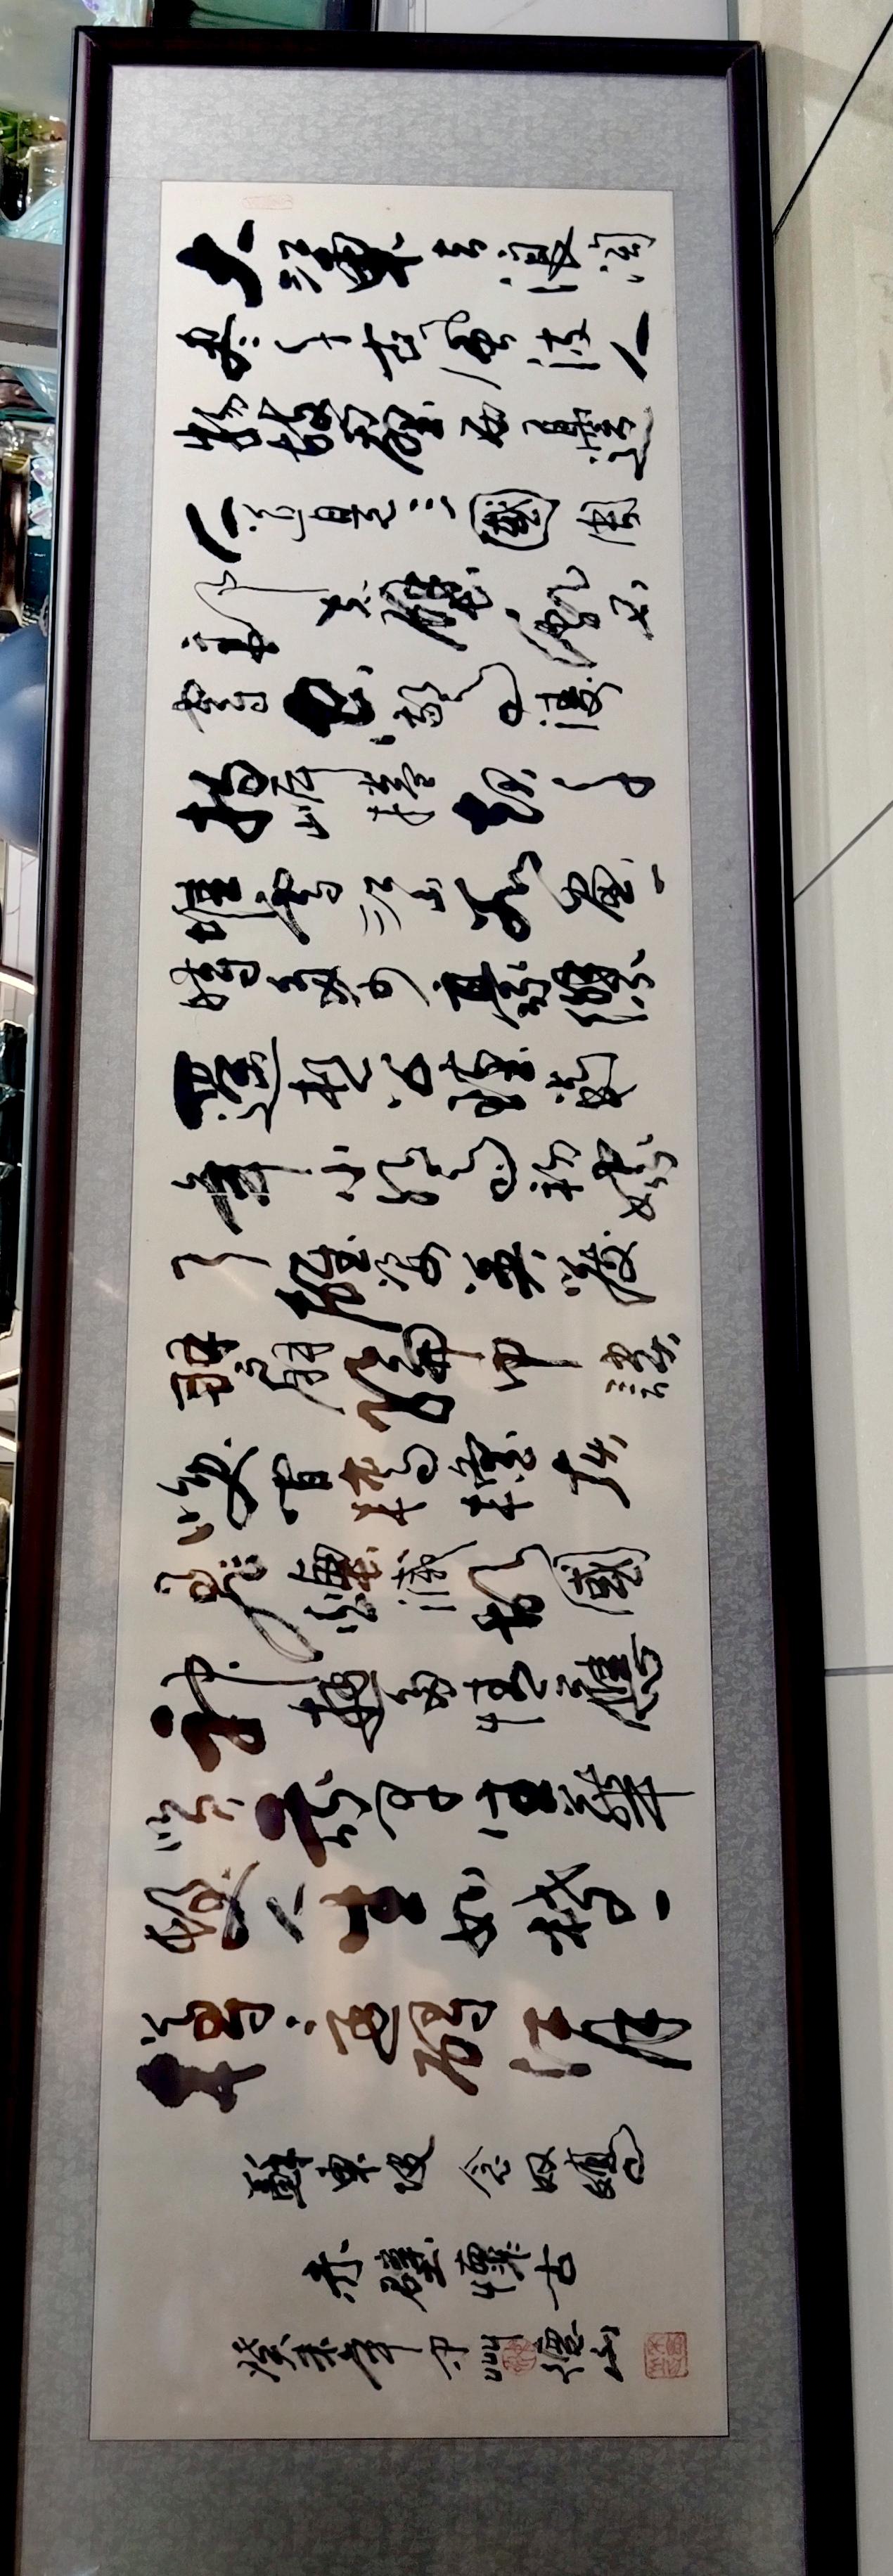 大江東去浪淘
盡千古風流人
物故壘西邊
人道是三國周
郎赤壁亂石
穿空驚濤
拍岸捲起千
堆雪江山如畫一
時多少豪傑
遙想公瑾當
年小喬初嫁
了雄姿英發
羽扇綸巾談
笑間檣櫓灰
飛煙滅故國
神遊多情應
笑我早生華
髮人生如夢一
尊還酹江月
蘇東坡念奴嬌
赤壁懷古
癸未年